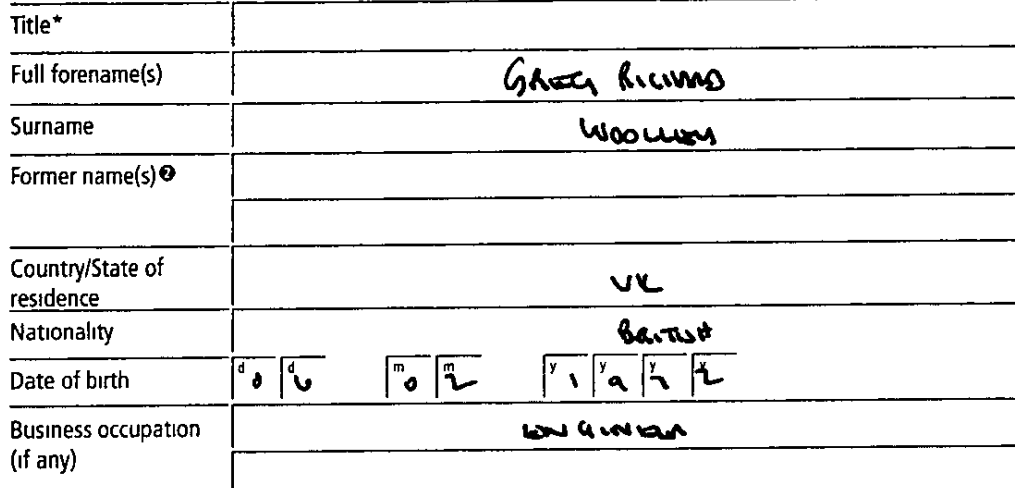 Title*
Full forename(s) GREG RICHARD
Surname WOOLLEY
Former name(s) ❷
Country/State of
residence UK
Nationality BRITISH
Date of birth d 0 d 6 m 0 m 2 y 1 y 9 y 7 y 2
Business occupation ENGINEER
(if any)